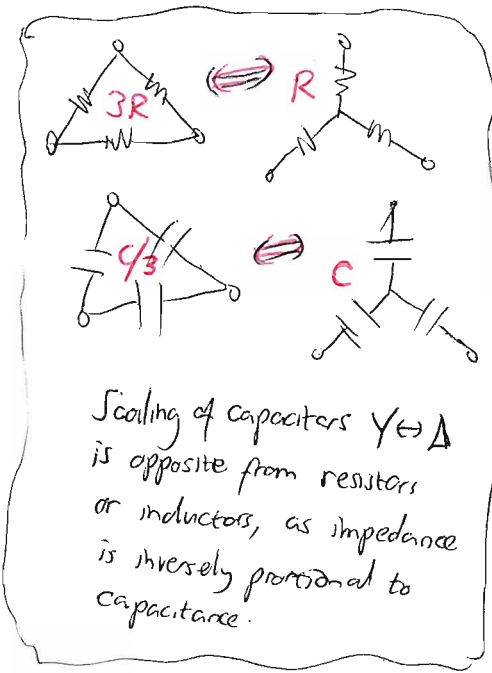 3R
R
C/3
C
Scaling of capacitors Y↔Δ
is opposite from resistors
or inductors, as impedance
is inversely proportional to
capacitance.